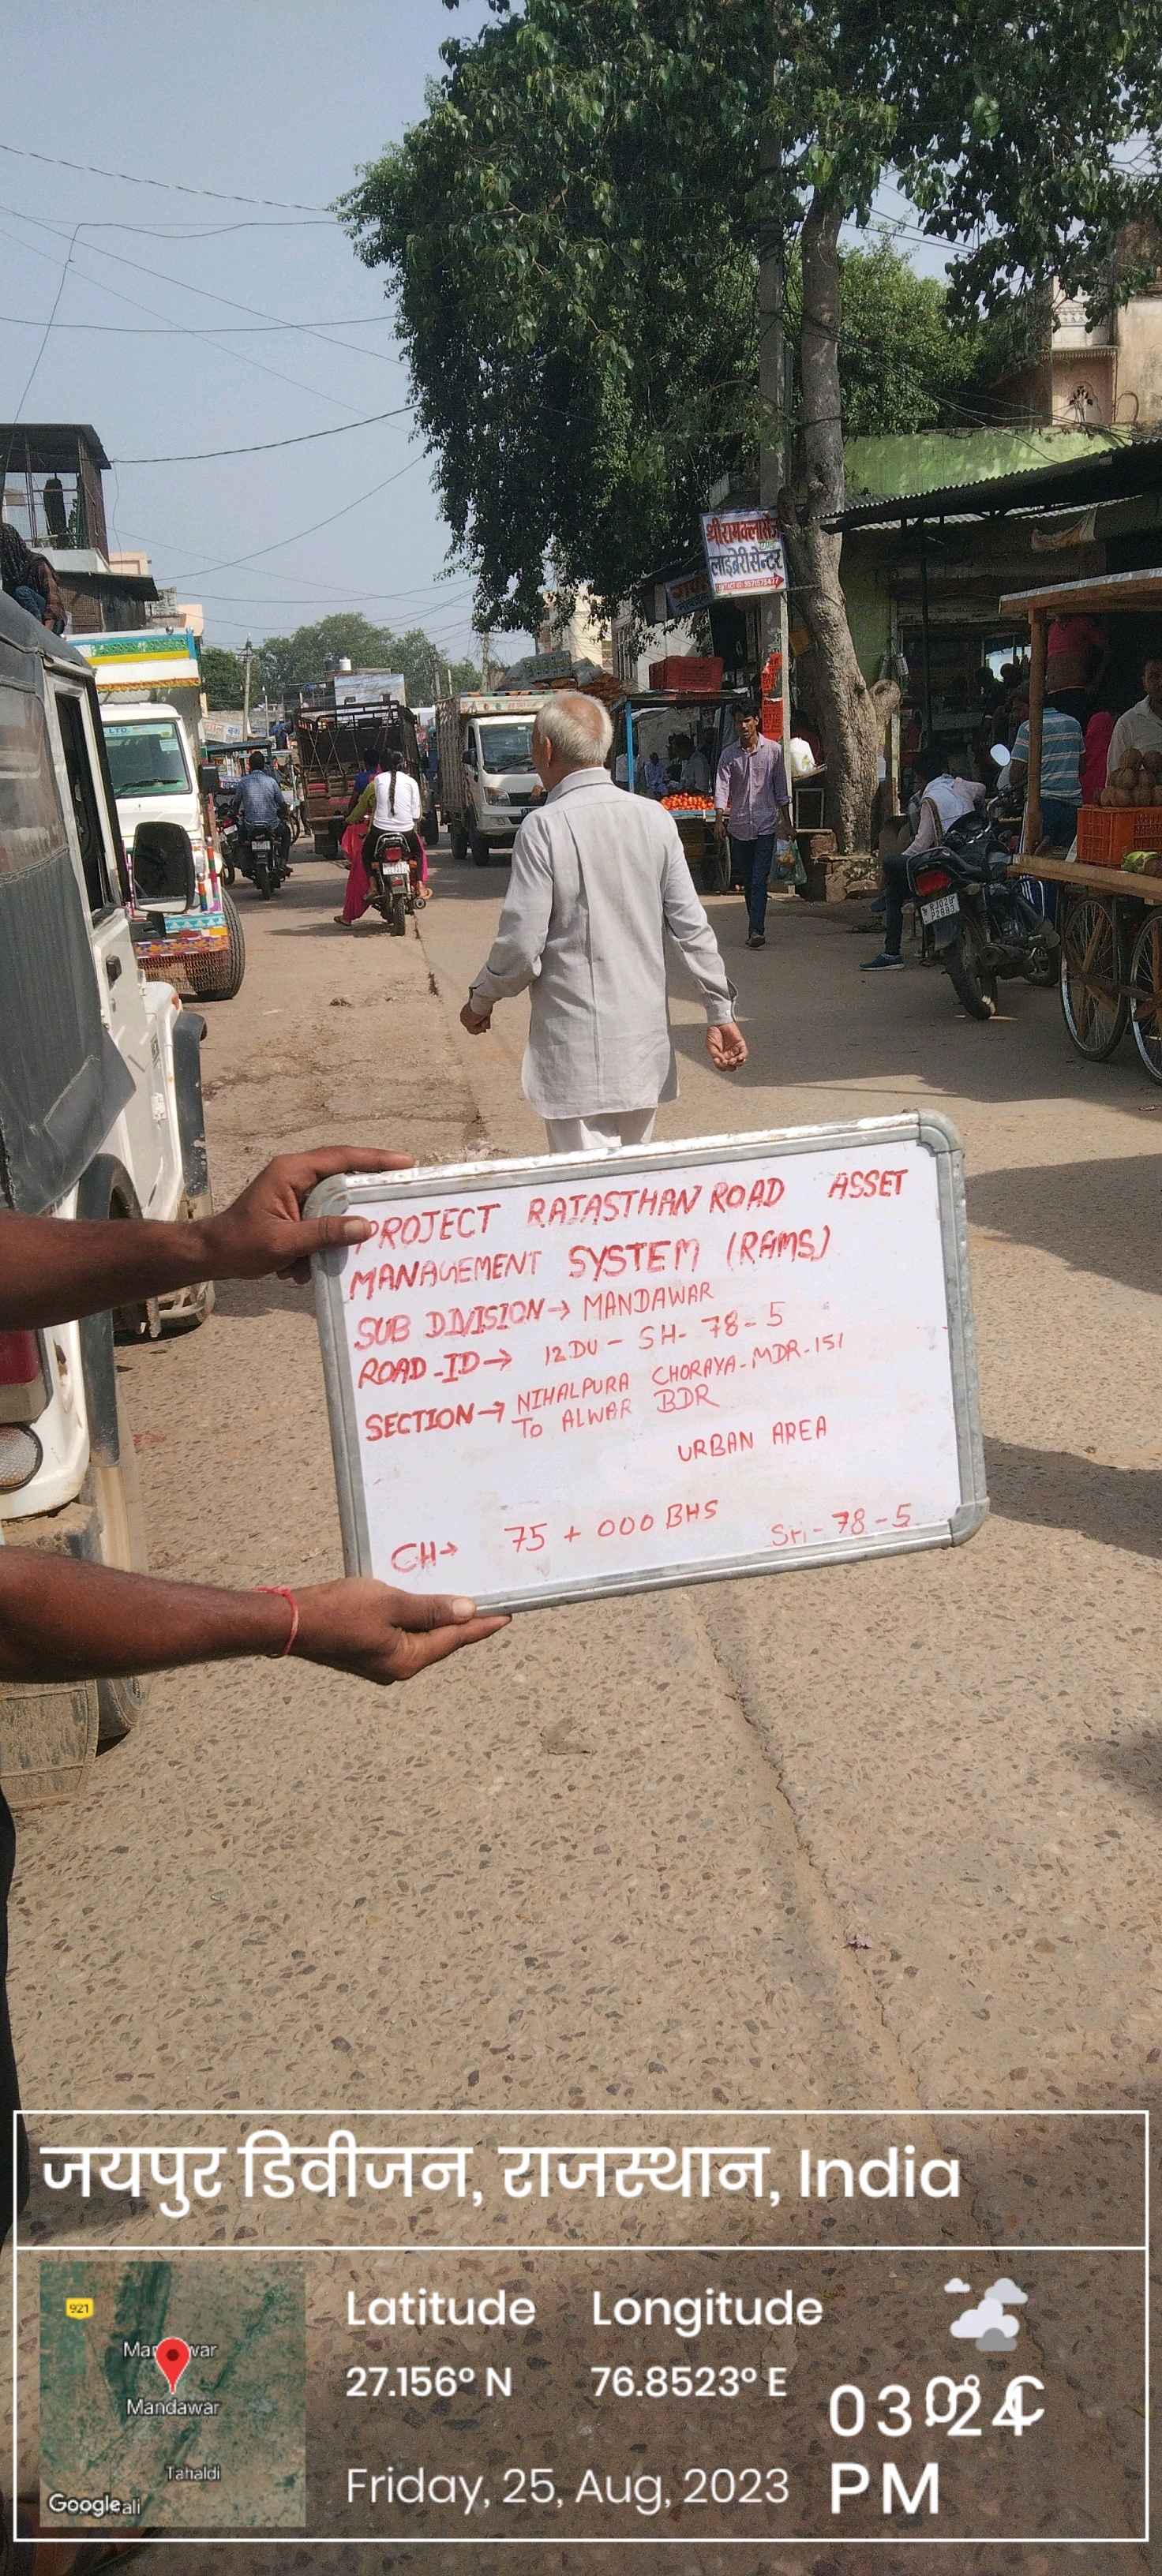 श्री राम क्लासेज
लाइब्रेरी सेन्टर
LTD.
PROJECT RAJASTHAN ROAD ASSET
MANAGEMENT SYSTEM (RAMS)
SUB DIVISION→ MANDAWAR
ROAD-ID→ 12DU - SH- 78-5
SECTION→ NIHALPURA CHORAYA-MDR-151
TO ALWAR BDR
URBAN AREA
CH→ 75 + 000 BHS
SH-78-5
जयपुर डिवीजन, राजस्थान, India
921
Mandawar
Tahaldi
Google
Latitude Longitude
27.156° N 76.8523° E
0°C
03:24
PM
Friday, 25, Aug, 2023